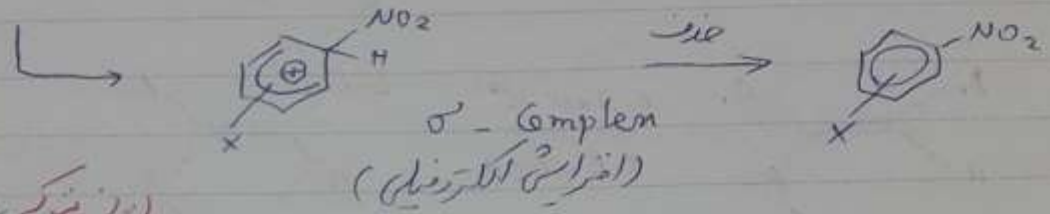 NO2
H
⊕
X
حذف
NO2
X
σ - Complex
(افزایش الکتروفیلی)